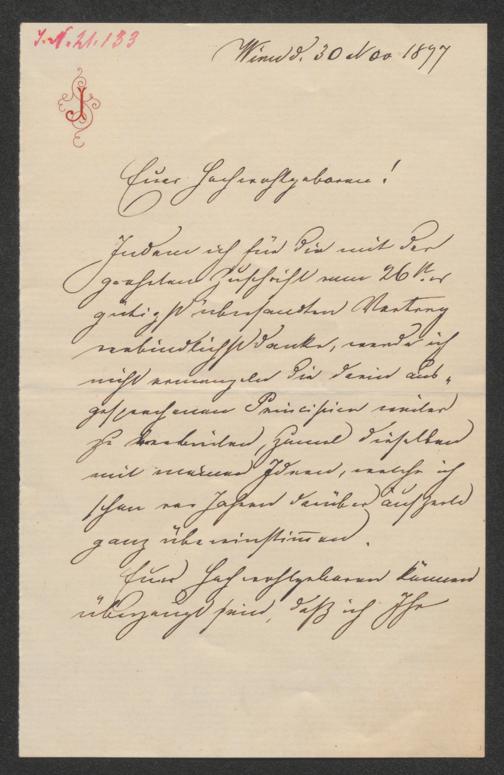 J. N. 21.133
Wien d. 30 Nov 1897
J
Euer Hochwohlgeboren!
Indem ich für die mit der
geehrten Zuschrift vom 26t. er
gütigst übersandten Vortrag
verbindlichst danke, werde ich
nicht ermangeln die darin aus-
gesprochenen Principien weiter
zu verbreiten, zumal dieselben
mit meinen Ideen, welche ich
schon vor Jahren darüber äußerte
ganz übereinstimmen.
Euer Hochwohlgeboren können
überzeugt sein, daß ich Ihr